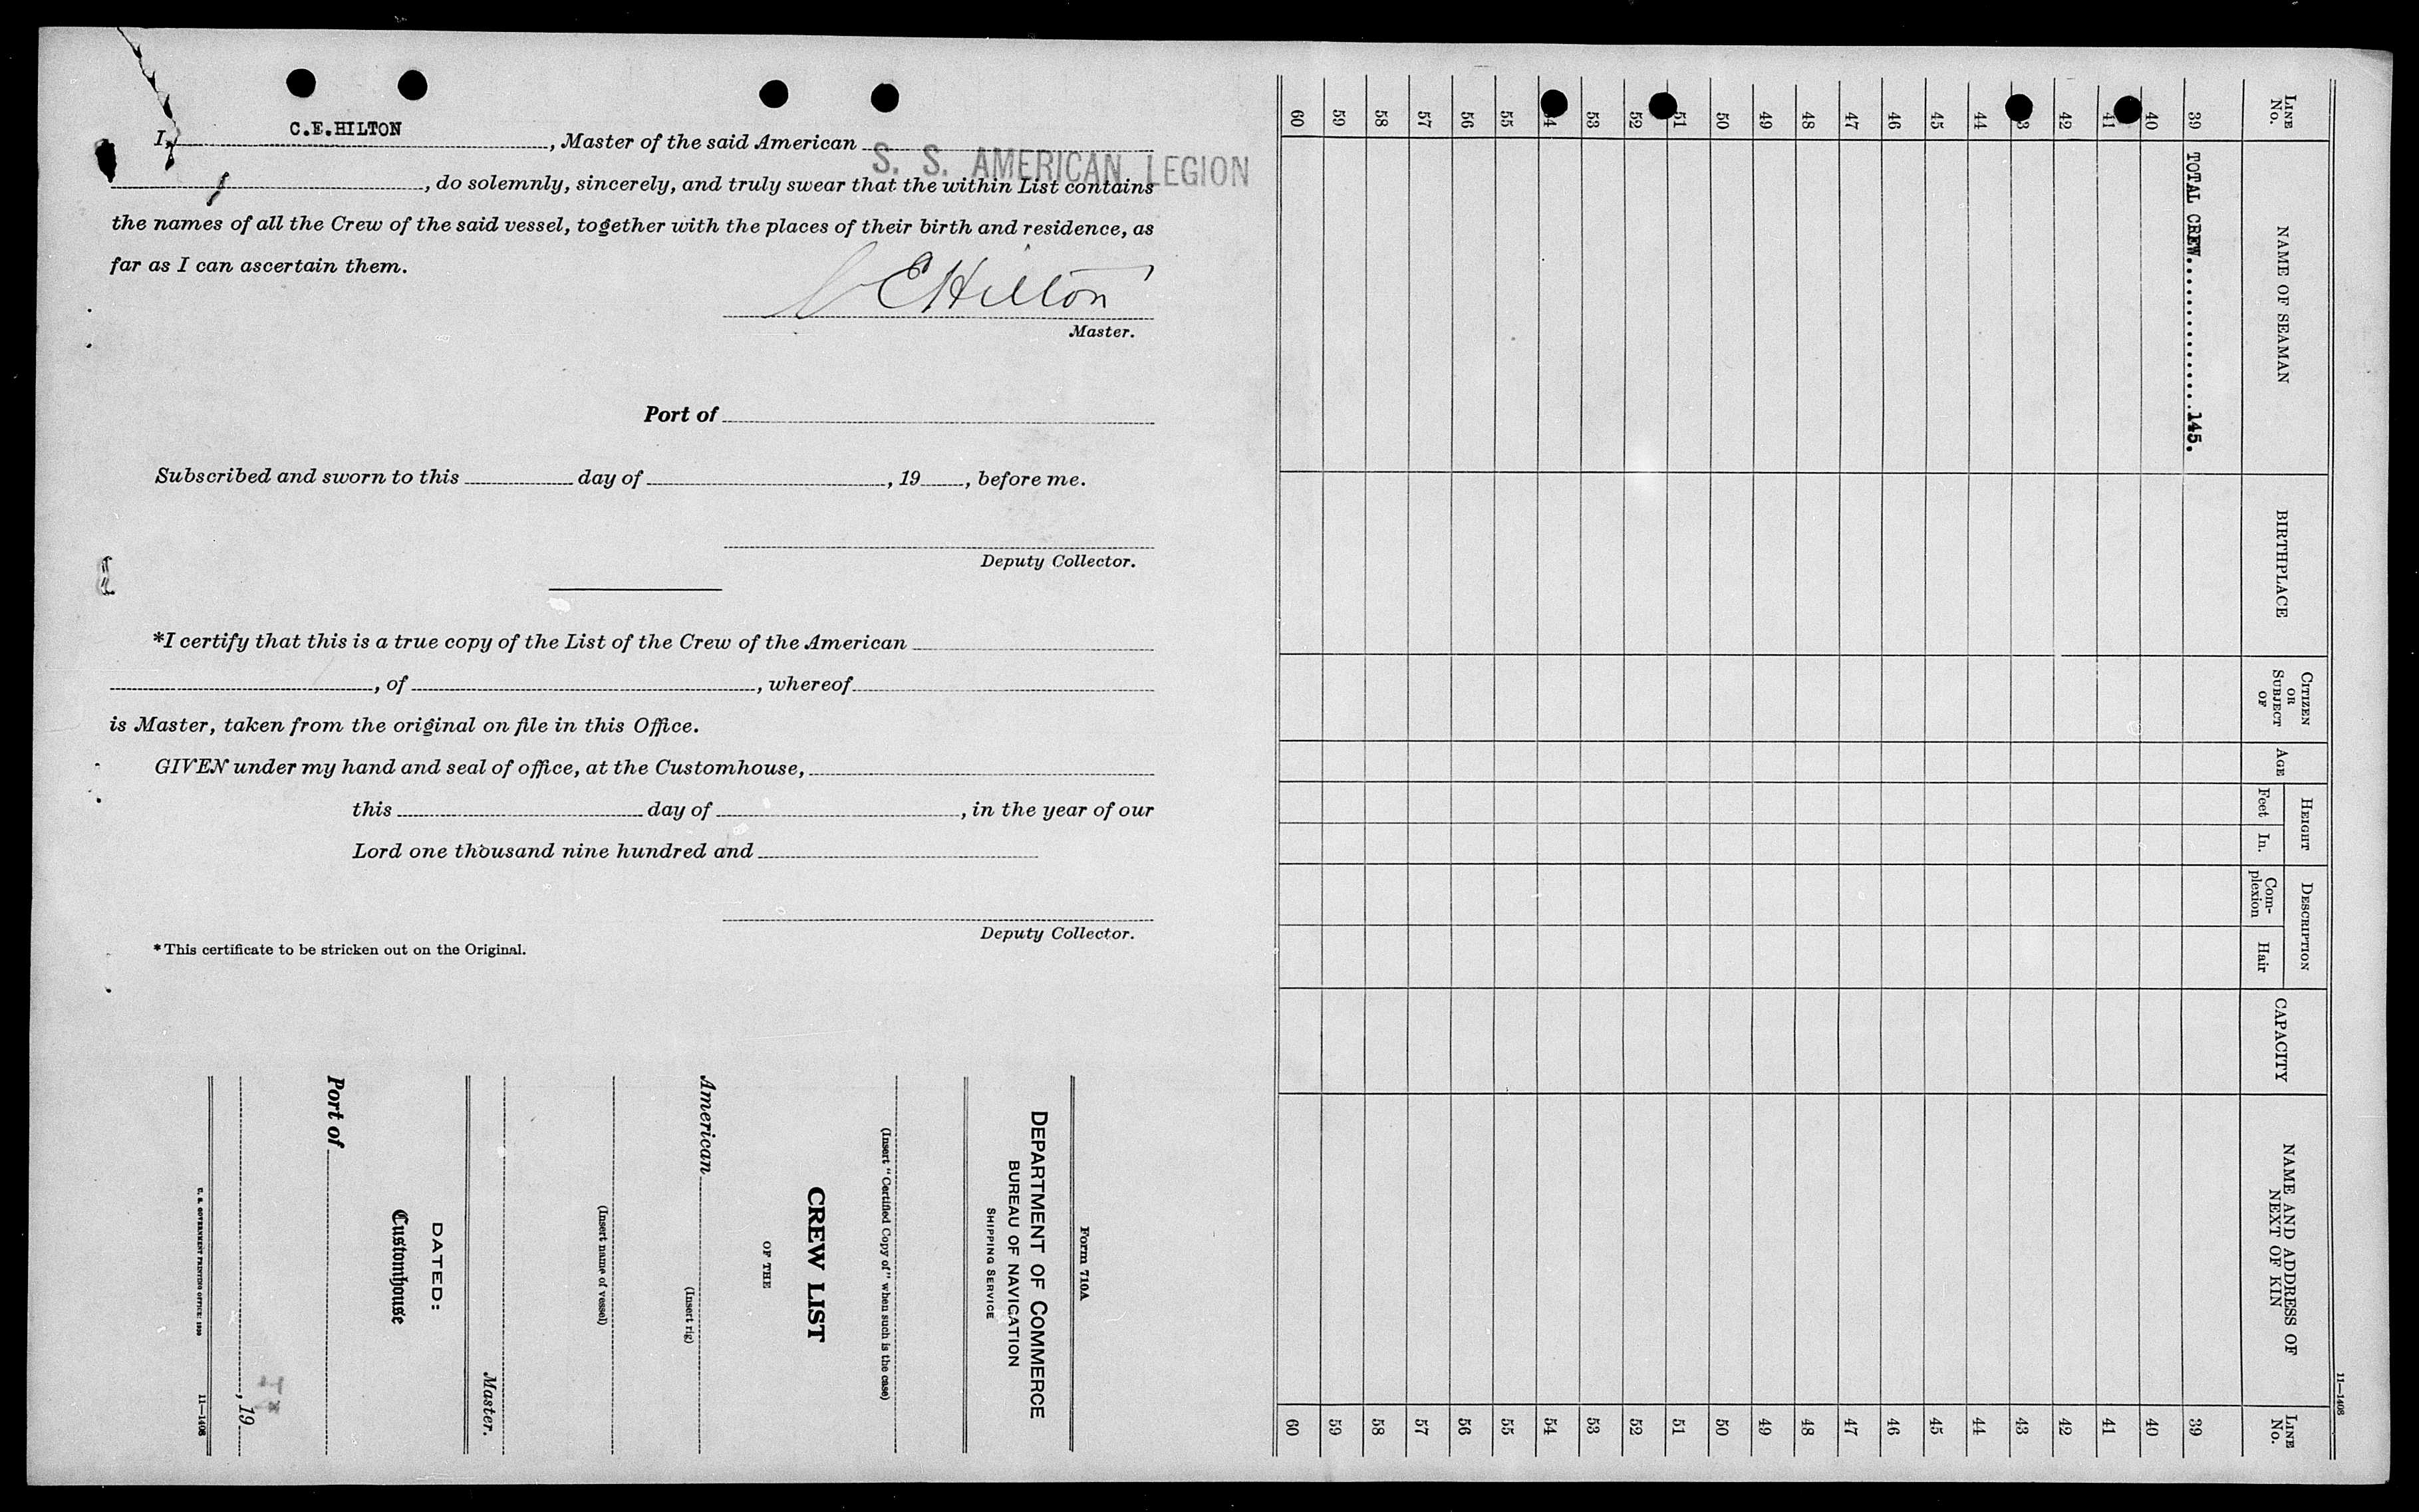 C.E.HILTON
I, , Master of the said American
S. S. AMERICAN LEGION
, do solemnly, sincerely, and truly swear that the within List contains
the names of all the Crew of the said vessel, together with the places of their birth and residence, as
far as I can ascertain them.
C E Hilton
Master.
Port of
Subscribed and sworn to this day of , 19 , before me.
Deputy Collector.
*I certify that this is a true copy of the List of the Crew of the American
, of , whereof
is Master, taken from the original on file in this Office.
GIVEN under my hand and seal of office, at the Customhouse,
this day of , in the year of our
Lord one thousand nine hundred and
Deputy Collector.
* This certificate to be stricken out on the Original.
Form 710A
DEPARTMENT OF COMMERCE
BUREAU OF NAVIGATION
SHIPPING SERVICE
(Insert "Certified Copy of" when such is the case)
CREW LIST
OF THE
American
(Insert rig)
(Insert name of vessel)
Master.
DATED:
Customhouse
Port of
, 19
U. S. GOVERNMENT PRINTING OFFICE:
11—1408
11—1408
LINE No.
NAME OF SEAMAN
BIRTHPLACE
CITIZEN OR SUBJECT OF
AGE
HEIGHT
Feet
In.
DESCRIPTION
Com-plexion
Hair
CAPACITY
NAME AND ADDRESS OF NEXT OF KIN
LINE No.
39 TOTAL CREW....................145. 39
40 40
41 41
42 42
3 43
44 44
45 45
46 46
47 47
48 48
49 49
50 50
51 51
52 52
53 53
4 54
55 55
56 56
57 57
58 58
59 59
60 60